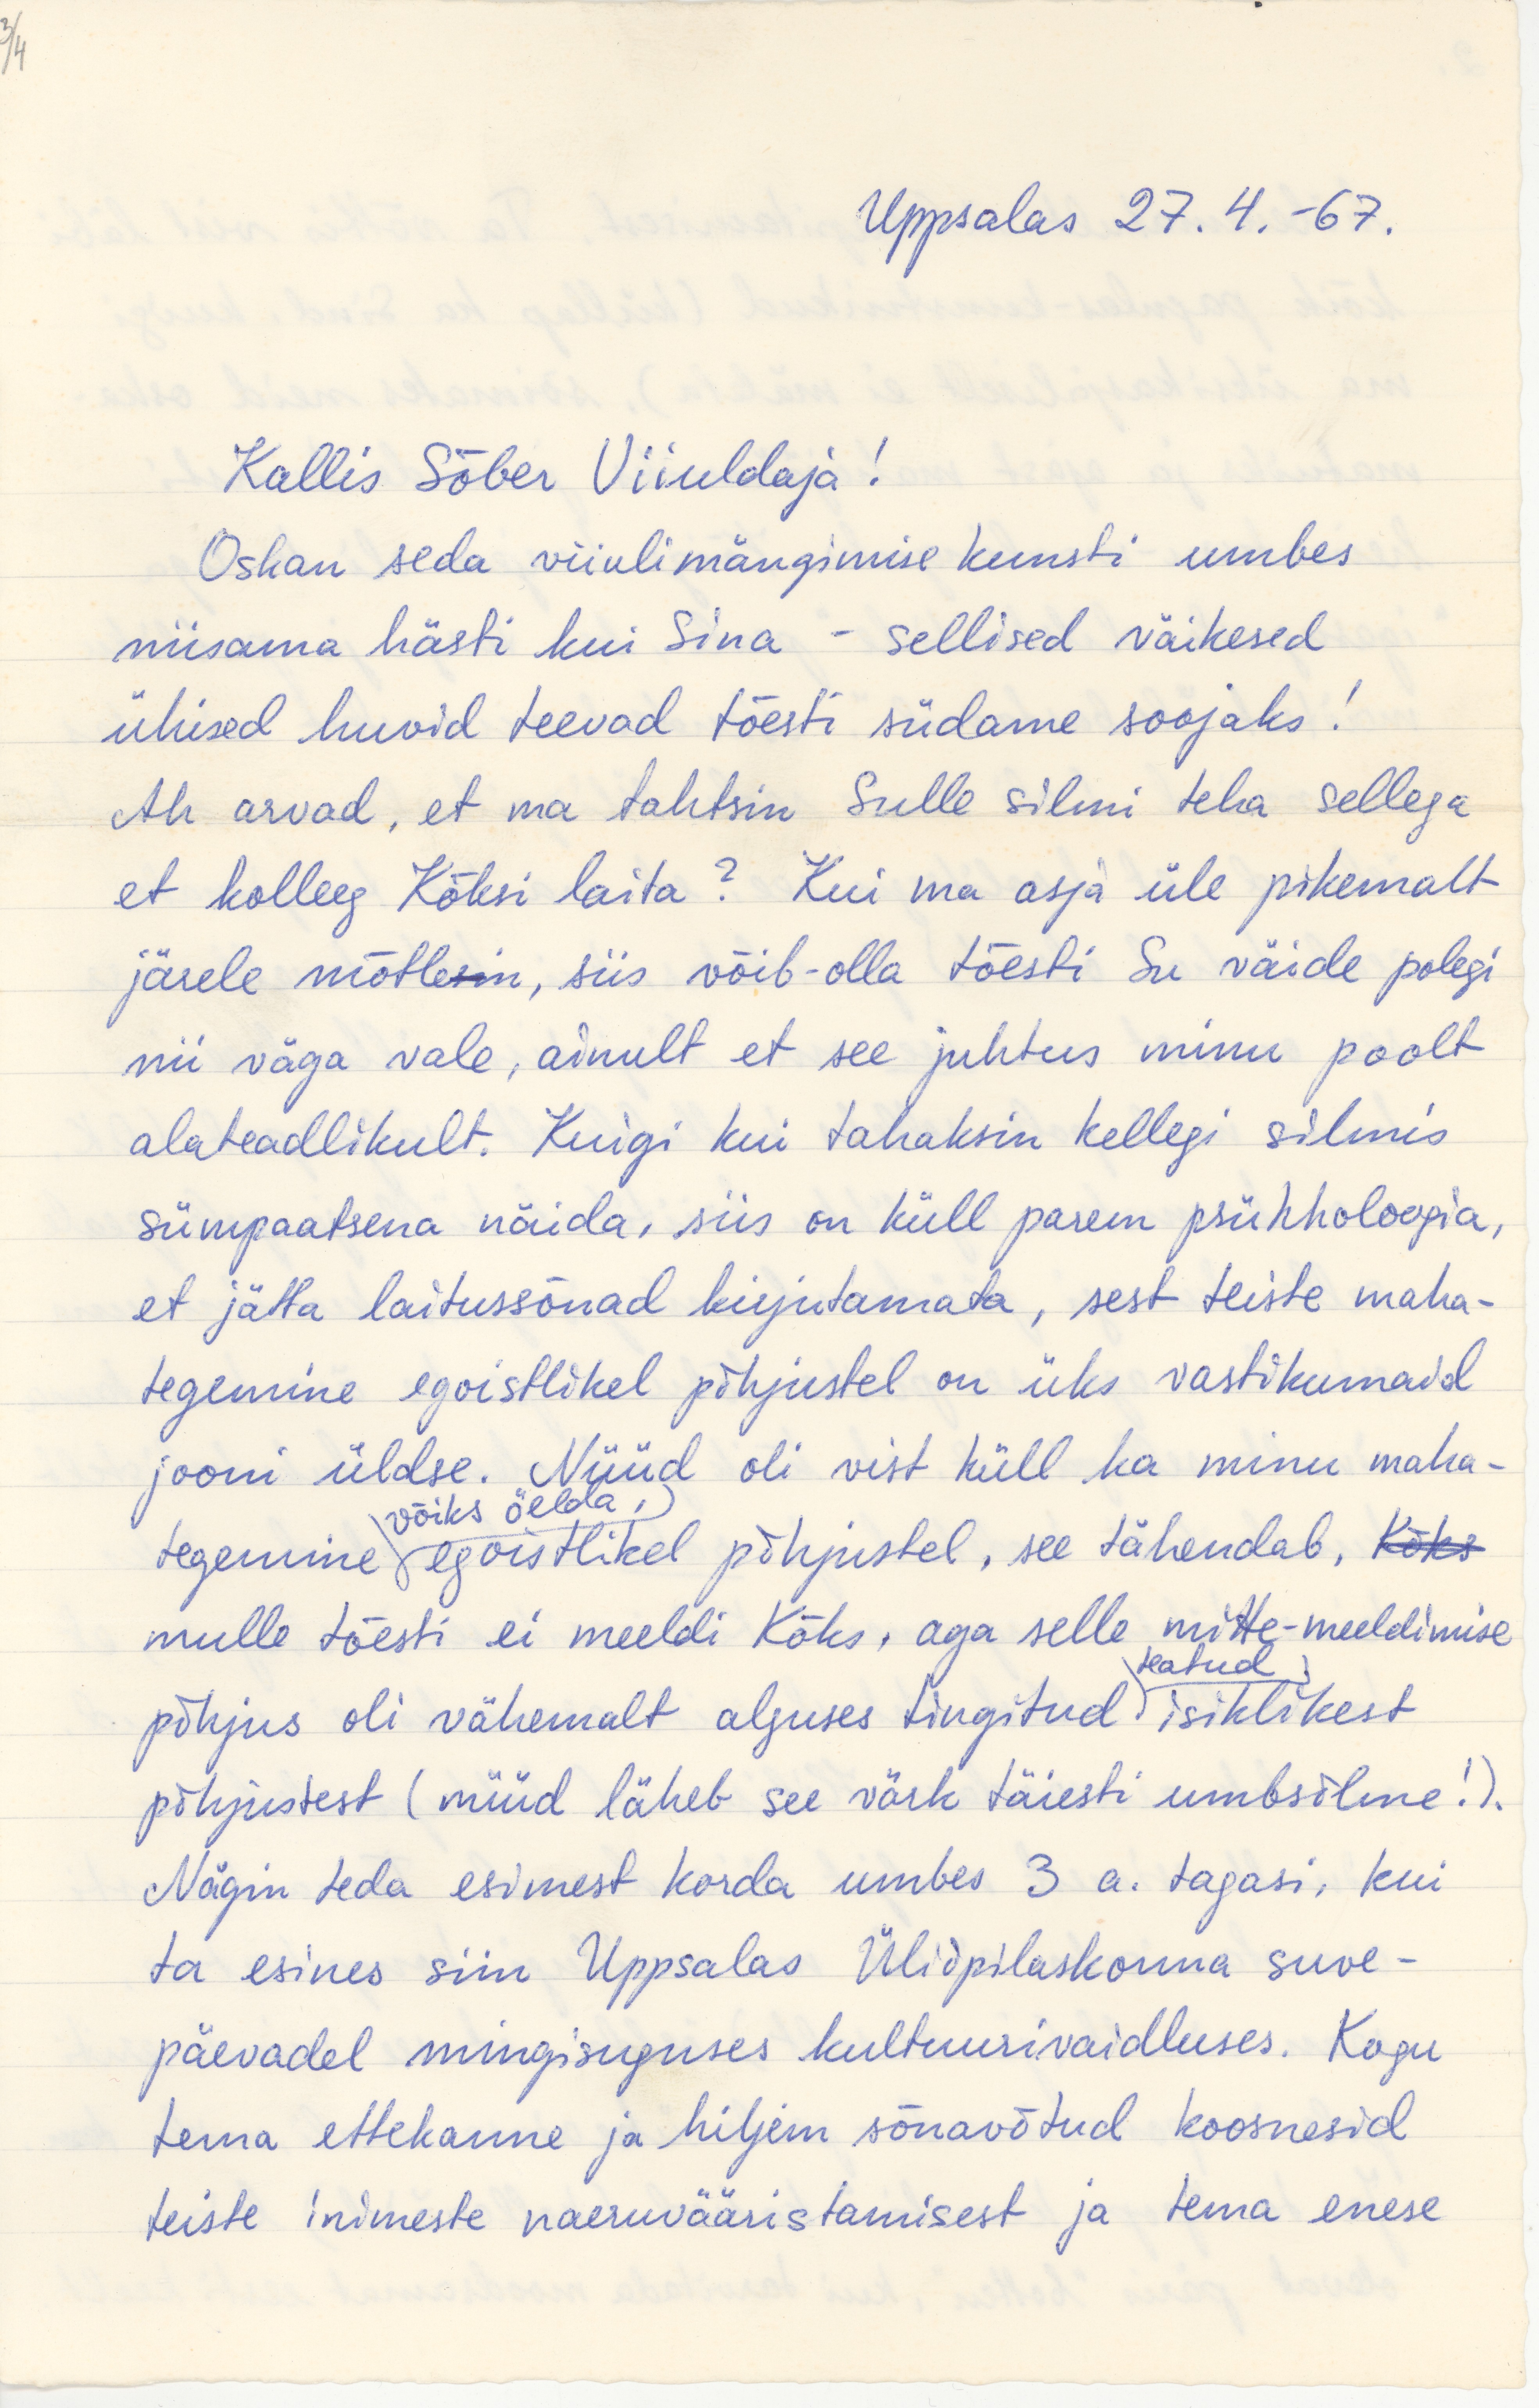 3/4
Uppsalas 27.4.-67.
Kallis Sõber Viiuldaja!
Oskan seda viiulimängimise kunsti umbes
niisama hästi kui Sina - sellised väikesed
ühised huvid teevad tõesti südame soojaks!
Ah arvad, et ma tahtsin Sulle silmi teha sellega
et kolleeg Kõksi laita? Kui ma asja üle pikemalt
järele mõtlesin, siis võib-olla tõesti Su väide polegi
nii väga vale, ainult et see juhtus minu poolt
alateadlikult. Kuigi kui tahaksin kellegi silmis
sümpaatsena näida, siis on küll parem psühholoogia,
et jätta laitussõnad kirjutamata, sest teiste maha-
tegemine egoistlikel põhjustel on üks vastikumaid
jooni üldse. Nüüd oli vist küll ka minu maha-
võiks öelda,
tegemine egoistlikel põhjustel, see tähendab, Kõks
mulle tõesti ei meeldi Kõks, aga selle mitte-meeldimise
teatud
põhjus oli vähemalt alguses tingitud isiklikest
põhjustest (nüüd läheb see värk täiesti umbsõlme!).
Nägin teda esimest korda umbes 3 a. tagasi, kui
ta esines siin Uppsalas Üliõpilaskonna suve-
päevadel mingisuguses kultuurivaidluses. Kogu
tema ettekanne ja hiljem sõnavõtud koosnesid
teiste inimeste naeruvääristamisest ja tema enese